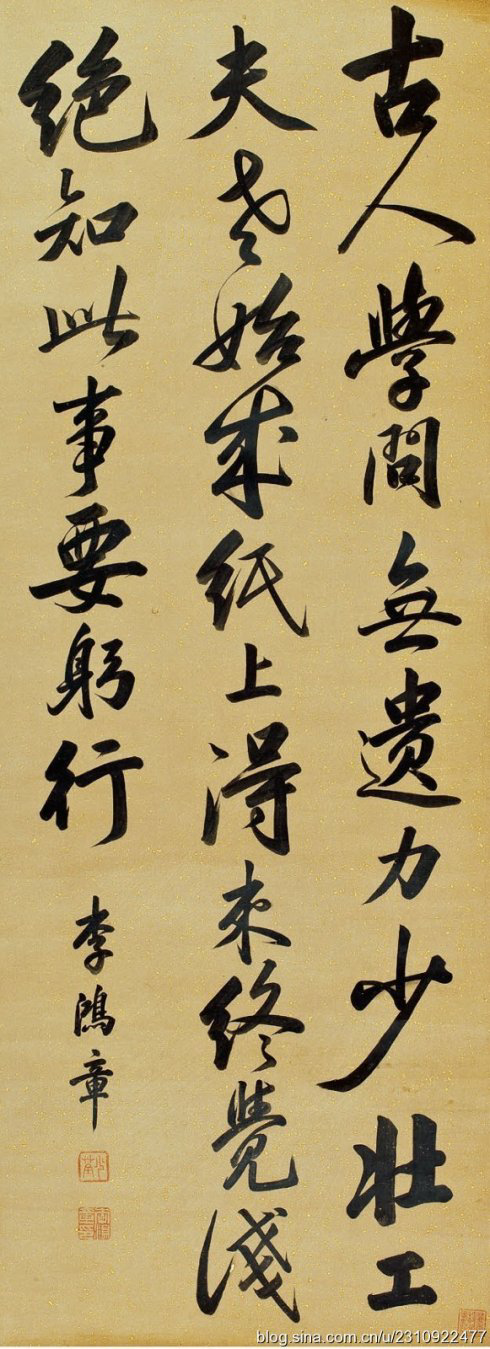 古人學問無遺力少壯工
夫老始成紙上得来終覺淺
絕知此事要躬行
李鴻章
blog.sina.com.cn/u/2310922477